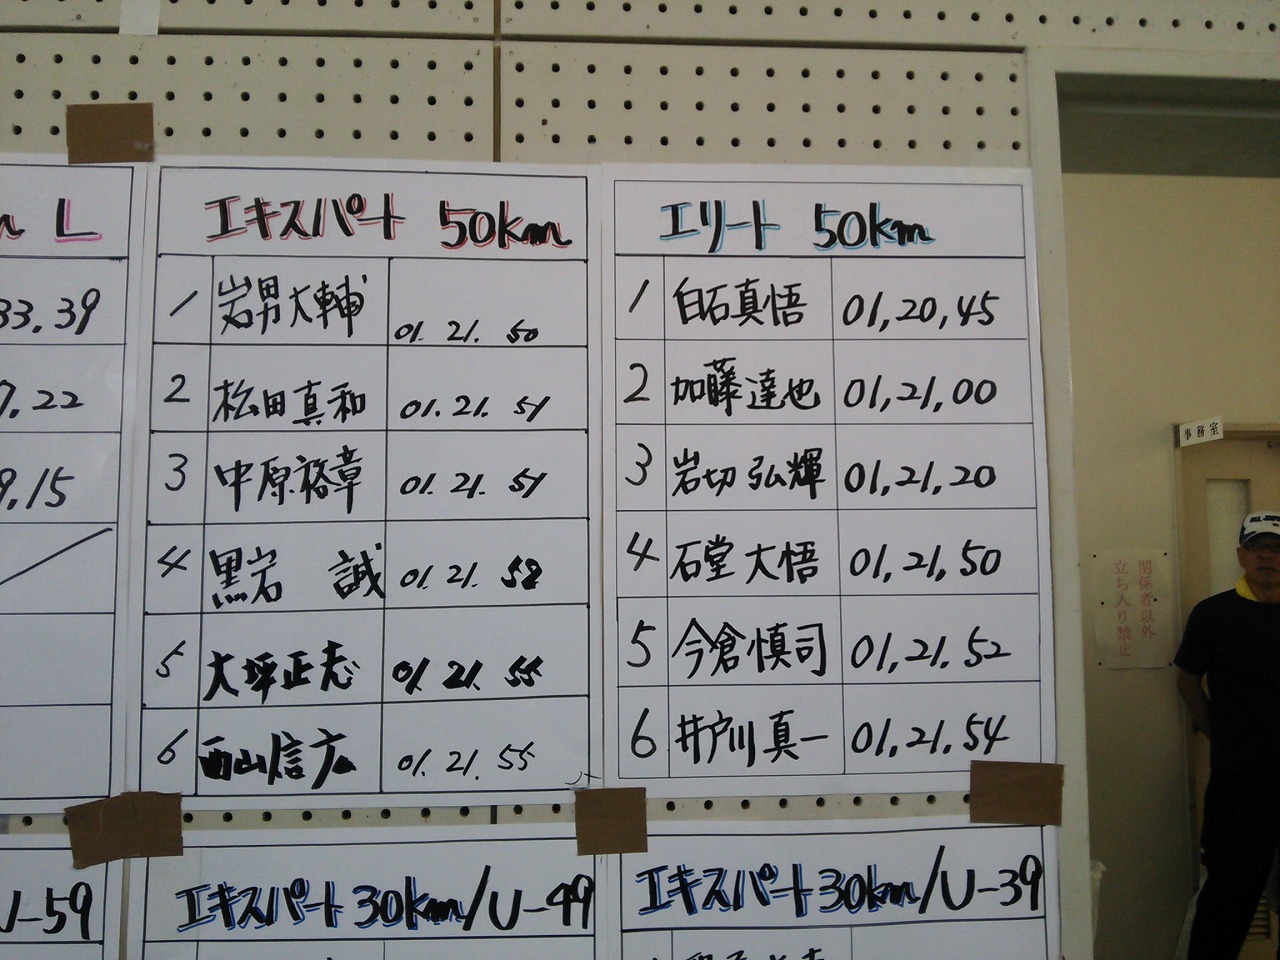 m L
33,39
7.22
9.15
エキスパート 50km
1 岩男大輔 01. 21. 50
2 松田真和 01. 21. 51
3 中原裕章 01. 21. 51
4 黒岩 誠 01. 21. 52
5 大坪正志 01. 21. 55
6 西山信広 01. 21. 55
エリート 50km
1 白石真悟 01,20,45
2 加藤達也 01,21,00
3 岩切弘輝 01,21,20
4 石堂大悟 01,21,50
5 今倉慎司 01,21.52
6 井戸川真一 01,21.54
U-59
エキスパート30km/U-49
エキスパート30km/U-39
事務室
関係者以外
立ち入り禁止